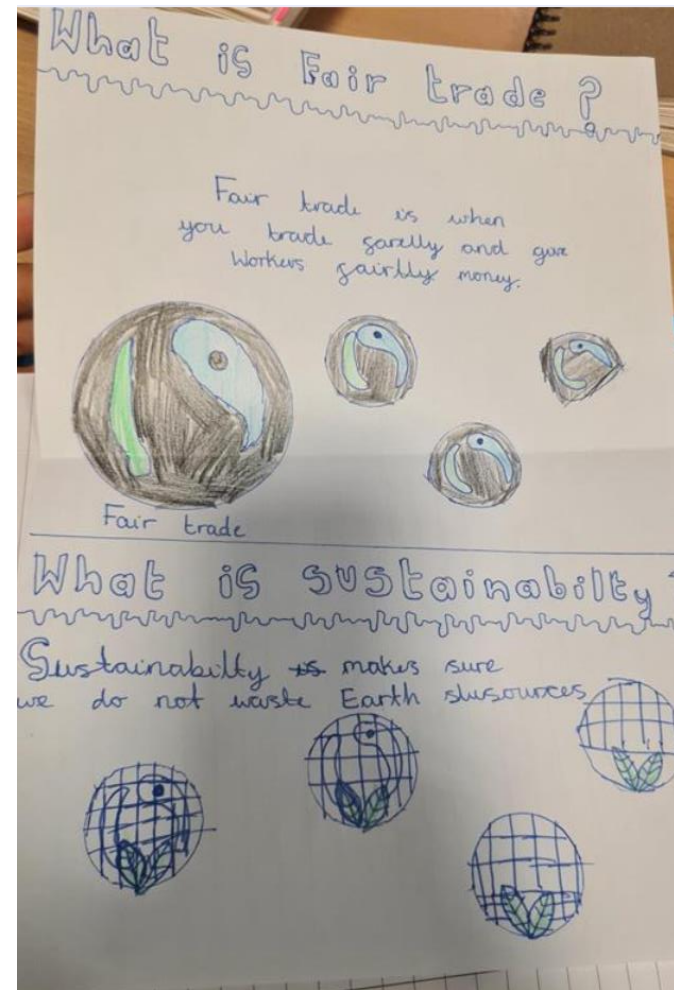 What is Fair trade?
Fair trade is when
you trade sarelly and give
Workers fairlly money.
Fair trade
What is sustainabilty?
Sustainabilty is makes sure
we do not waste Earth